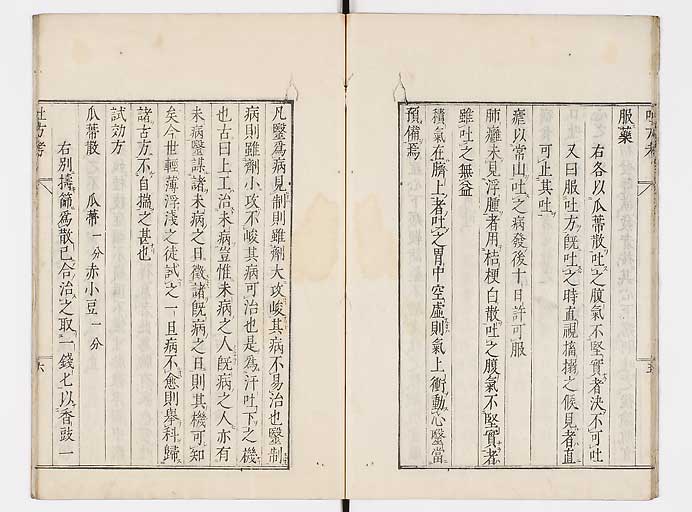 服藥
右各以瓜蒂散吐之腹氣不堅實者決不可吐
又曰服吐方既吐之時直視搐搦之候見者直
可止其吐
瘧以常山吐之病發後十日許可服
肺癰未見浮腫者用桔梗白散吐之腹氣不堅實者
雖吐之無益
積氣在臍上者吐之胃中空虛則氣上衝動心醫當
預備焉
凡毉爲病見制則雖劑大攻峻其病不易治也毉制
病則雖劑小攻不峻其病可治也是爲汗吐下之機
也古曰上工治未病豈惟未病之人既病之人亦有
未病毉謀諸未病之且徵諸既病之且則其機可知
矣今世輕薄浮淺之徒試之一且病不愈則舉科歸
諸古方不自揣之甚也
試効方
瓜蒂散 瓜蒂一分赤小豆一分
右別擣篩爲散已合治之取一錢匕以香豉一
吐方考
六